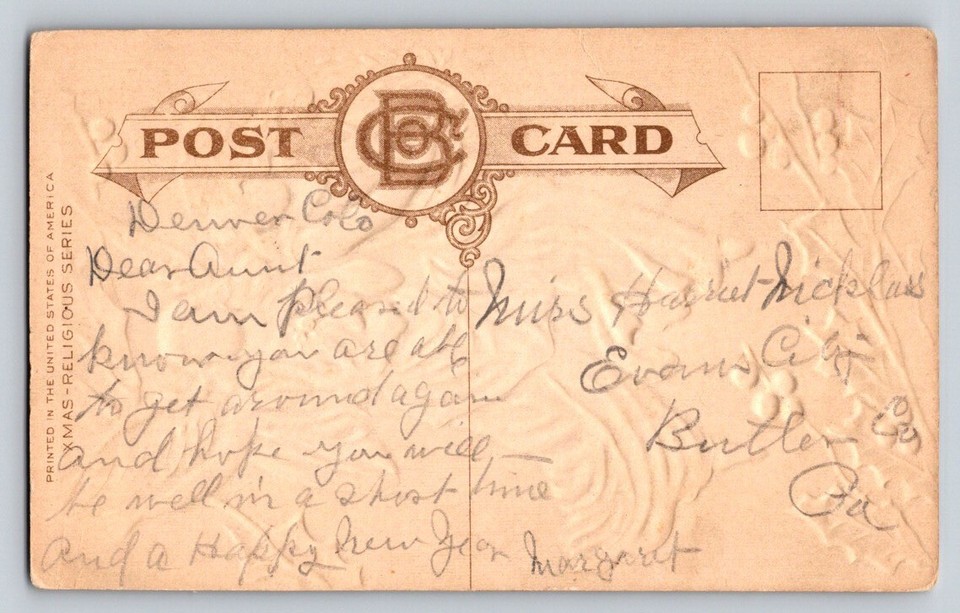 POST CARD
PRINTED IN THE UNITED STATES OF AMERICA
XMAS-RELIGIOUS SERIES
Denver Colo
Dear Aunt
I am pleased to
know you are able
to get around again
and hope you will
be well in a short time
and a Happy New Year Margaret
Miss Harriet Nicklas
Evans City
Butler Co
Pa